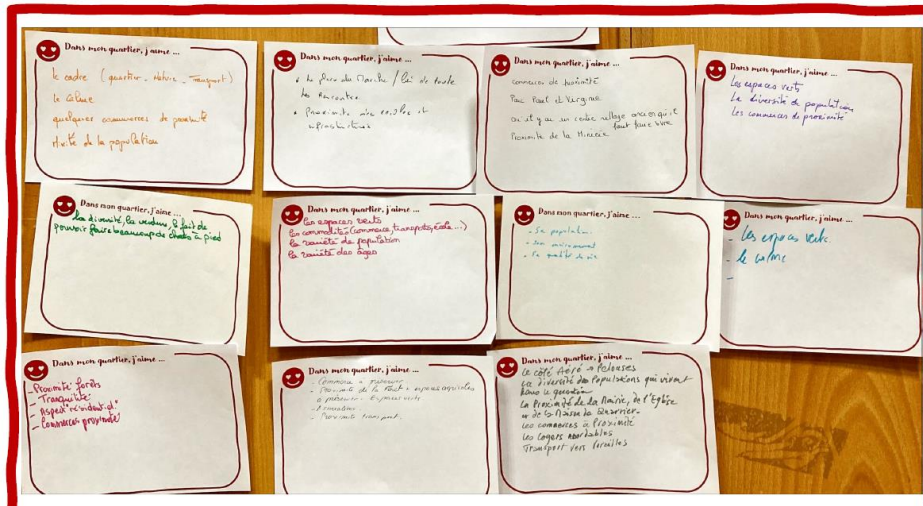 Dans mon quartier, j'aime ...
le cadre (quartier - Nature - Transport)
le calme
quelques commerces de proximité
Mixité de la population
Dans mon quartier, j'aime ...
les Rencontres
Proximité des écoles et
infrastructures
Dans mon quartier, j'aime ...
commerces de proximité
Parc Paul et Virginie
Proximité de la Mairie
Dans mon quartier, j'aime ...
Les espaces verts
La diversité de population
Les commerces de proximité
Dans mon quartier, j'aime ...
La diversité, la verdure, le fait de
pouvoir faire beaucoup de choses à pied
Dans mon quartier, j'aime ...
Les espaces verts
les commodités (commerce, transports, école ...)
la variété de population
la variété des âges
Dans mon quartier, j'aime ...
- Sa population
- Son environnement
- Sa qualité de vie
Dans mon quartier, j'aime ...
- Les espaces verts
- le calme
-
Dans mon quartier, j'aime ...
- Proximité forêts
- Tranquilité
- Aspect "résidentiel"
- Commerces proximité
Dans mon quartier, j'aime ...
- Commerces à
- Proximité de la forêt - espaces
à préserver - Espaces verts
- Proximité transport
Dans mon quartier, j'aime ...
Le côté Aéro → Pelouses
La diversité des Populations qui vivent
dans le quartier
La Proximité de la Mairie, de l'Eglise
et de la Maison de Quartier.
Les commerces à Proximité
Les Loyers abordables
Transport vers Versailles